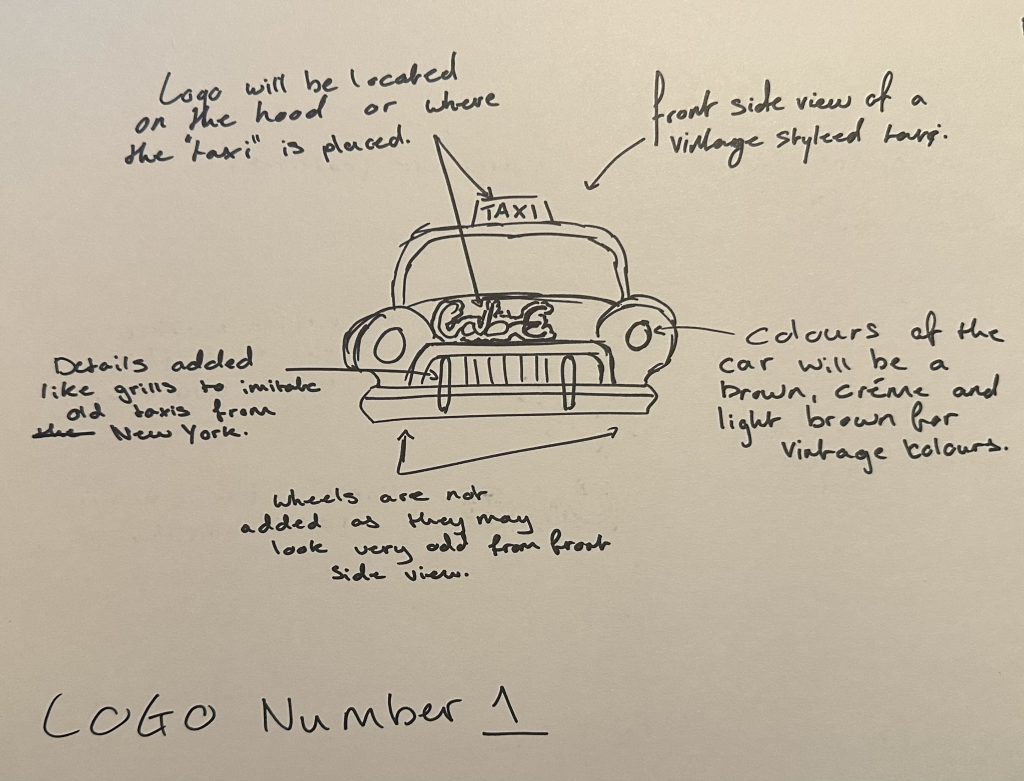 Logo will be located
on the hood or where
the "taxi" is placed.
front side view of a
vintage styleed taxi.
TAXI
CabE
Details added
like grills to imitate
old taxis from
the New York.
colours of the
car will be a
brown, créme and
light brown for
vintage colours.
Wheels are not
added as they may
look very odd from front
side view.
LOGO Number 1